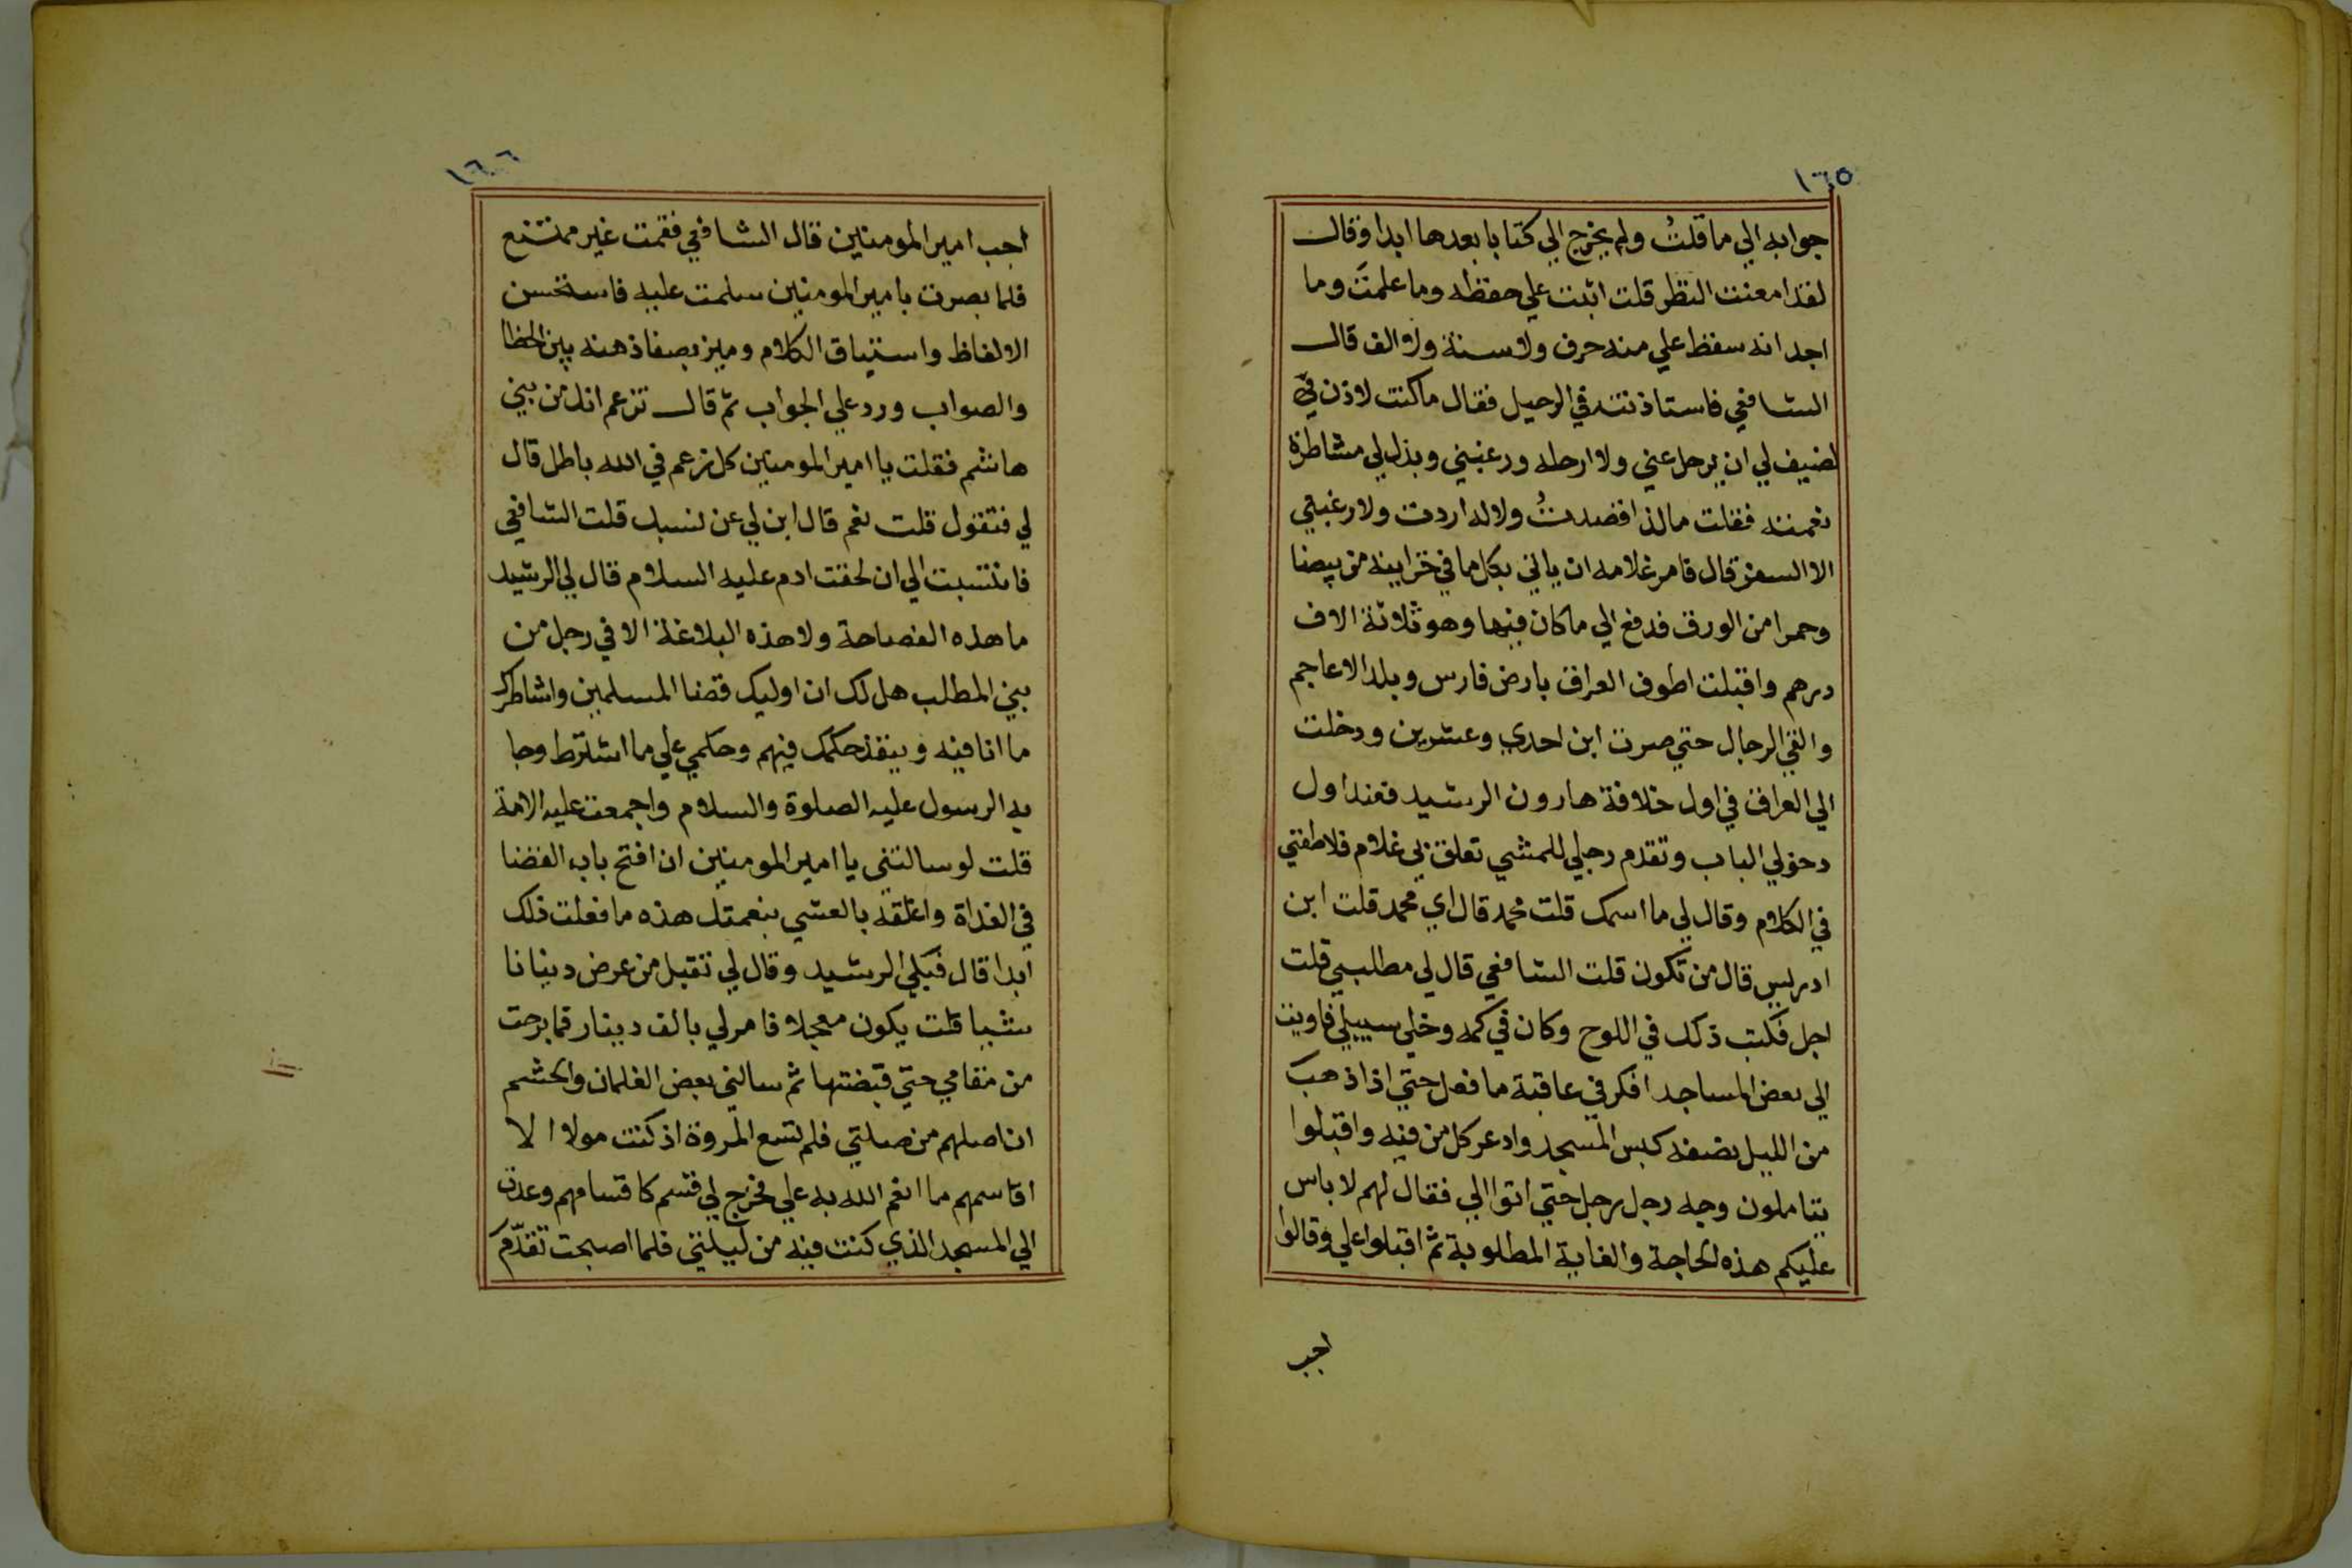 ١٦٥
جوابه الي ما قلتُ ولم يخرج الي كتابا بعدها ابدا وقال
لقد امعنت النظر قلت اتيت علي حفظه وما علمت وما
اجد انه سقط علي منه حرف ولا سنة ولا الف قال
الشافعي فاستاذنته في الرحيل فقال ما كنت لاذن في
لضيف لي ان يرحل عني ولا ارحله ورغبني وبذل لي مشاطرة
نعمته فقلت ما لذا قصدتُ ولا له اردت ولا رغبتي
الا السفر قال فامر غلامه ان ياتي بكل ما في خزاينه من بيضا
وحمرا من الورق فدفع الي ما كان فيها وهو ثلاثة الاف
درهم واقبلت اطوف العراق بارض فارس وبلد الاعاجم
والقي الرجال حتي صرت ابن احدي وعشرين ودخلت
الي العراق في اول خلافة هارون الرشيد فعند اول
دخولي الباب وتقدم رجلي للمشي تعلق بي غلام فلاطفني
في الكلام وقال لي ما اسمك قلت محمد قال اي محمد قلت ابن
ادريس قال من تكون قلت الشافعي قال لي مطلبي قلت
اجل فكتب ذلك في اللوح وكان في كمه وخلي سبيلي فاويت
الي بعض المساجد افكر في عاقبة ما فعل حتي اذا ذهب
من الليل نصفه كبس المسجد وادعر كل من فيه واقبلوا
يتاملون وجه رجل برجل حتي اتوا الي فقال لهم لا باس
عليكم هذه الحاجة والغاية المطلوبة ثم اقبلوا علي وقالوا
اجب
١٦٦
اجب امير المومنين قال الشافعي فقمت غير ممتنع
فلما بصرت بامير المومنين سلمت عليه فاستحسن
الالفاظ واستياق الكلام وميز بصفا ذهنه بين الخطا
والصواب ورد علي الجواب ثم قال تزعم انك من بني
هاشم فقلت يا امير المومنين كل زعم في الله باطل قال
لي فتقول قلت نعم قال ابن لي عن نسبك قلت الشافعي
فانتسبت الي ان لحقت ادم عليه السلام قال لي الرشيد
ما هذه الفصاحة ولا هذه البلاغة الا في رجل من
بني المطلب هل لك ان اوليك قضا المسلمين واشاطرك
ما انا فيه وينفذ حكمك فيهم وحكمي علي ما اشترط وجا
به الرسول عليه الصلوة والسلام واجمعت عليه الامة
قلت لو سالتني يا امير المومنين ان افتح باب القضا
في الغداة واغلقه بالعشي بنعمتك هذه ما فعلت ذلك
ابدا قال فبكي الرشيد وقال لي تقبل من عرض دينانا
شيا قلت يكون معجلا فامر لي بالف دينار فما برحت
من مقامي حتي قبضتها ثم سالني بعض الغلمان والحشم
ان اصلهم من صلتي فلم تسع المروة اذ كنت مولا الا
اقاسمهم مما انعم الله به علي فخرج لي قسم كاقسامهم وعدت
الي المسجد الذي كنت فيه من ليلتي فلما اصبحت تقدّم